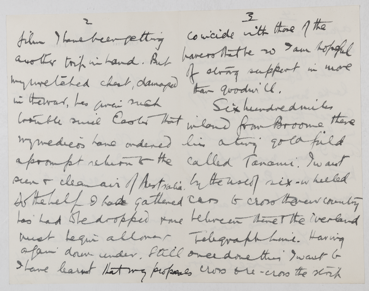 2
film I have been getting
another trip in hand. But
my wretched chest, damaged
in the war, has given such
trouble since Easter that
my medicos have ordered
a prompt return to the
sun & clean air of Australia.
So the help I had gathered
has had to be dropped & one
must begin all over
again down under. Still
I have learnt that my proposals
3
coincide with those of the
powers that be so I am hopeful
of strong support in more
than goodwill.
Six hundred miles
inland from Broome there
lies a tiny goldfield
called Tanami. I want
by the use of six-wheeled
cars to cross the new country
between there & the Overland
Telegraph Line. Having
once done this I want to
cross & re-cross the stock